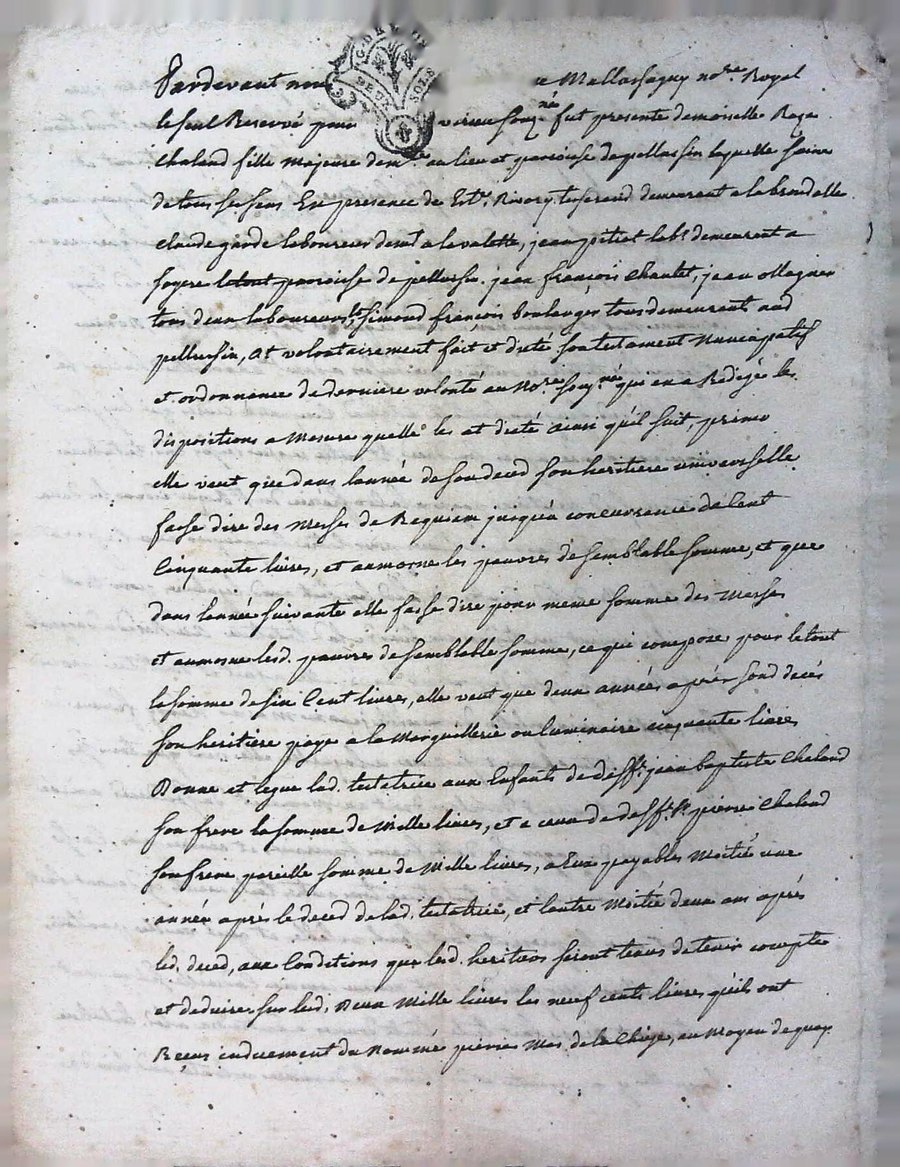 Pardevant nou Mallassagny no.re Royal
le seul Reservé pour virieu souz.né fut presente demoiselle
Chaland fille majeure dem.te au lieu et paroisse de pellussin laquelle saine
de tous ses sens En presence de Est.ne Rivory tisserand demeurant a
claude garde laboureur dem.t a la valette, jean petiot lab.r demeurant a
le tout paroisse de pellussin. jean françois Chantet, jean Magnin
tous deux laboureurs, et Simond françois boulanger tous demeurants aud
pellussin, at volontairement fait et dicté son testament Nuncupatif
et ordonnance de derniere volonté au No.re souz.né qui en a Redigé les
dispositions a Mesure quelle les at dicté ainsi qu'il suit, primo
elle veut que dans lannée de son deced son heritiere universelle
fasse dire des Messes de Requiem jusqu'a concurrance de Cent
Cinquante livres, et aumosne les pauvres de semblable somme, et que
dans lannée suivante elle fasse dire pour meme somme des Messes
et aumosne lesd. pauvres de semblable somme, ce qui compose pour le tout
la somme de six Cent livres, elle veut que deux années apres sond decés
son heritiere paye a la Marguillerie ou luminaire cinquante livres
Donne et legue lad. testatrice aux Enfants de deff.t jean baptiste Chaland
son frere la somme de Mille livres, et a ceux de deff.t S.r pierre Chaland
son frere pareille somme de Mille livres, a Eux payables Moitié une
année aprés le deced de lad. testatrice, et lautre Moitié deux ans aprés
led. deced, aux Conditions que lesd. heritiers seront tenus de tenir compte
et deduire sur lesd. Deux Mille livres les neuf cents livres qu'ils ont
Reçus induement du Nommé pierre Mas de la Chieze, au Moyen de quoy